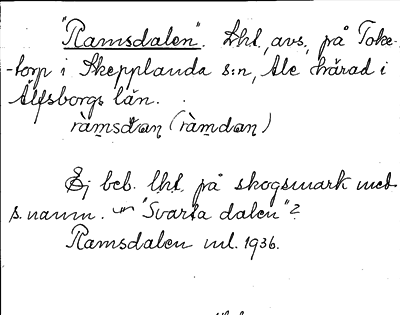 "Ramsdalen". Lhl, avs, på Toke-
-torp i Skepplanda s:n, Ale härad i
Älfsborgs län.
ràmsdan (ràmdan)
Ej beb. lhl. på skogsmark med
s. namn. "Svarta dalen"?
Ramsdalen ml. 1936.